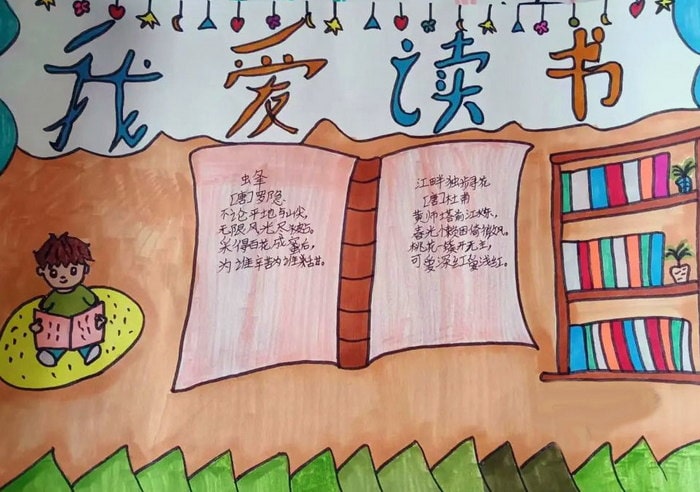 我爱读书
蜂
[唐]罗隐
不论平地与山尖,
无限风光尽被占。
采得百花成蜜后,
为谁辛苦为谁甜。
江畔独步寻花
[唐]杜甫
黄师塔前江水东,
春光懒困倚微风。
桃花一簇开无主,
可爱深红爱浅红。